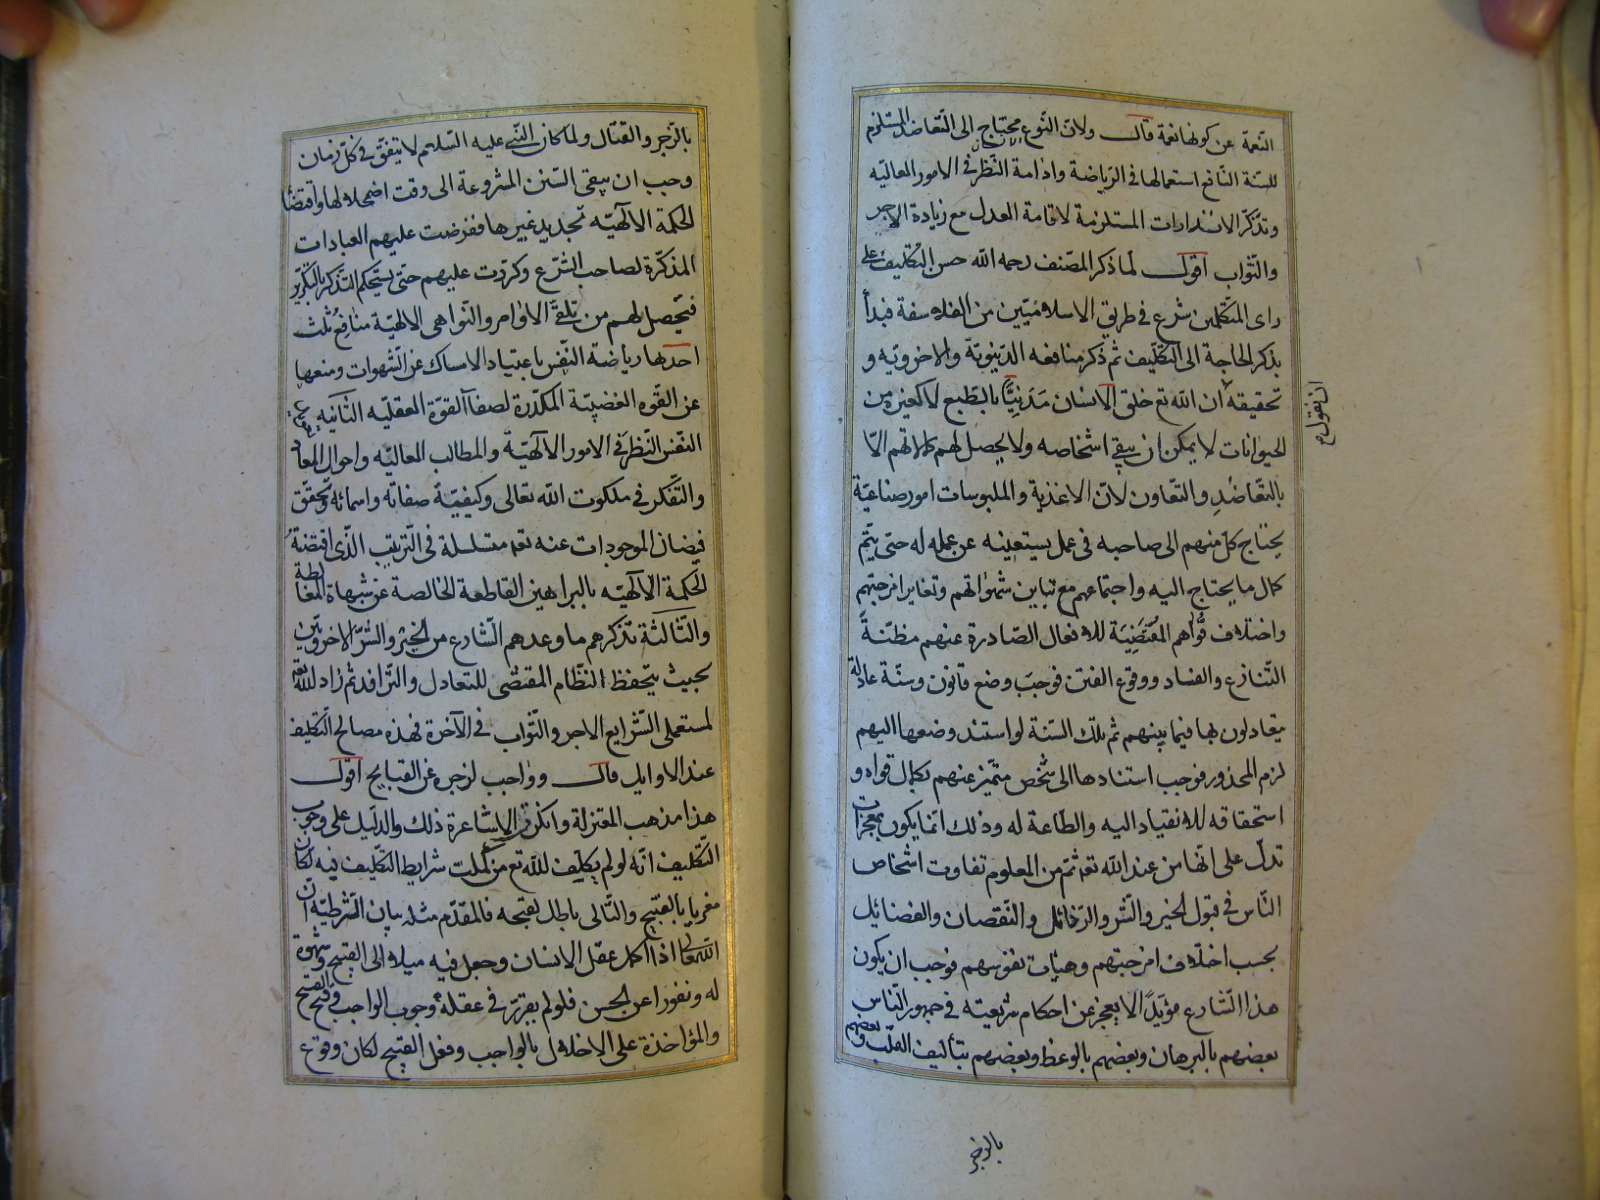 النّعمة عن كونها نعمة قال ولانّ النّوع محتاج الى التّعاضد المستلزم
للسنة النافع استعمالها فى الرّياضة وادامة النّظر فى الامور العاليّه
وتذكّر الانذارات المستلزمة لاقامة العدل مع زيادة الاجر
والثّواب اقول لما ذكر المصّنف رحمه الله حسن التّكليف على
راى المتكلّمين شرع فى طريق الاسلاميّين من الفلاسفة فبدأ
بذكر الحاجة الى التّكليف ثم ذكر منافعه الدّنيويّة والاخرويّه و
تحقيقه ان الله تع خلق الانسان مَدَنِيًّا بالطّبع لا كغيره من
ان نقول
الحيوانات لا يمكن ان يبقى اشخاصه ولا يحصل لهم كمالاتهم الّا
بالتّعاضُدِ والتّعاون لانّ الاغذية والملبوسات امور صناعيّة
يحتاج كلّ منهم الى صاحبه فى عمل يستعينه عن عمله له حتى يتمّ
كمال ما يحتاج اليه واجتماعهم مع تباين شهواتهم وتغاير امزجتهم
واختلاف قُواهم المُقتَضِيَة للافعال الصّادرة عنهم مظنّةُ
التّنازع والفساد ووقوع الفتن فوجبَ وضع قانون وسنّة عادلة
يتعادلون بها فيما بينهم ثم تلك السّنة لو استند وضعها اليهم
لزم المحذور فوجب استنادها الى شخص متميّز عنهم بكمال قواه و
استحقاقه للانقياد اليه والطّاعة له وذلك انّما يكون بمعجزات
تدلّ على انّها من عند الله تعه ثمّ من المعلوم تفاوت اشخاص
النّاس فى قبول الخير والشّر والرّذائل والنّقصان والفضائل
بحسب اختلاف امزجتهم وهيئات نفوسهم فوجب ان يكون
هذا الشّارع مؤيّدًا لا يعجز عن احكام شريعته فى جمهور النّاس
بعضهم بالبرهان وبعضهم بالوعظ وبعضهم بتأليف القلب وبعضهم
بالزجر
بالزّجر والقتال ولما كان النّبى عليه السّلم لا يتفقّ فى كلّ زمان
وجب ان يبقى السّنن المشروعة الى وقت اضمحلالها واقتضاء
الحكمة الالهيّه تجديد غيرها ففرضت عليهم العبادات
المذكّرة لصاحب الشّرع وكرّرت عليهم حتى يستحكم التّذكر بالتكرير
فيحصل لهم من تلقّى الاوامر والنّواهى الالهيّة منافعُ ثلث
احدها رياضة النّفس باعتياد الامساك عن الشّهوات ومنعها
عن القوه الغضبيّة المكدّرة لصفاء القوّة العقليّه الثانيه
النّفس النّظر فى الامور الالهيّة والمطالب العاليّه واحوال المعاد
والتّفكّر فى ملكوت الله تعالى وكيفيّة صفاته واسمائه وتحقّق
فيضان الموجودات عنه تعه متسلسلة فى التّرتيب الّذى اقتضته
الحكمة الالهيّه بالبراهين القاطعة الخالصة عن شبهاة المغالطة
والثّالثة تذّكرهم ما وعدهم الشّارع من الخير والشّرّ الاخرويّين
بحيث يتحفظ النظّام المقتضى للتعادل والتّرافد ثم زاد الله تعه
لمستعملى الشّرايع الاجر والثّواب فى الآخرة فهذه مصالح التّكليف
عند الاوايل قال وواجب لزجره عن القبايح اقول
هذا مذهب المعتزلة وانكرت الاشاعرة ذلك والدّليل على وجوب
التّكليف انّه لو لم يكلّف الله تع من كملت شرايط التّكليف فيه لكان
مغريا بالقبيح والتّالى باطل لقبحه فالمقدّم مثله بيان الشّرطيّة ان
الله تعالى اذا اكمل عقل الانسان وجعل فيه ميلا الى القبيح وشهوة
له ونفورا عن الحسن فلو لم يقرّر فى عقله وجوب الواجب وقبح القبيح
والمؤاخذة على الاخلال بالواجب وفعل القبيح لكان وقوع